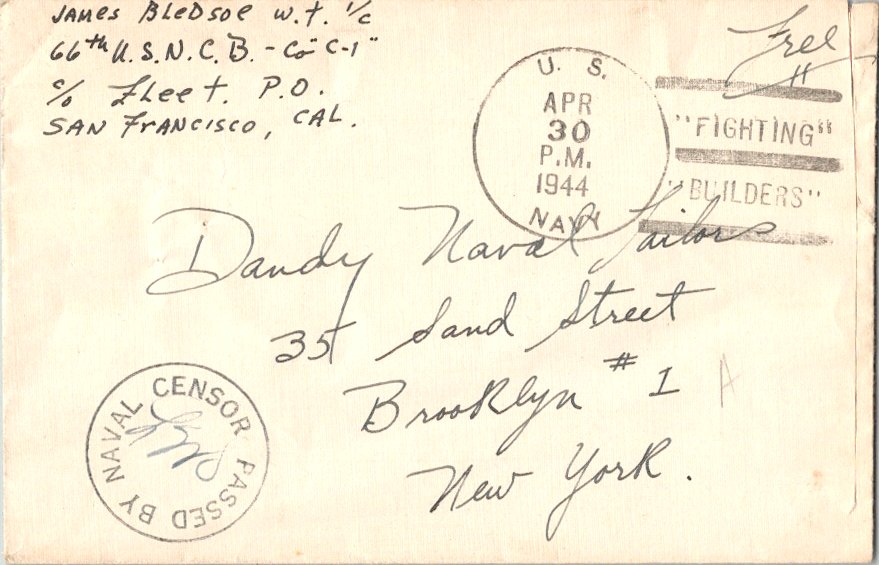 James Bledsoe W.T. 1/c
66th U.S.N.C.B. - Co "C-1"
c/o Fleet. P.O.
San Francisco, Cal.
Free
U. S.
APR
30
P.M.
1944
NAVY
"FIGHTING"
"BUILDERS"
Dandy Naval Tailors
35 Sand Street
Brooklyn #1
New York.
A
PASSED BY NAVAL CENSOR